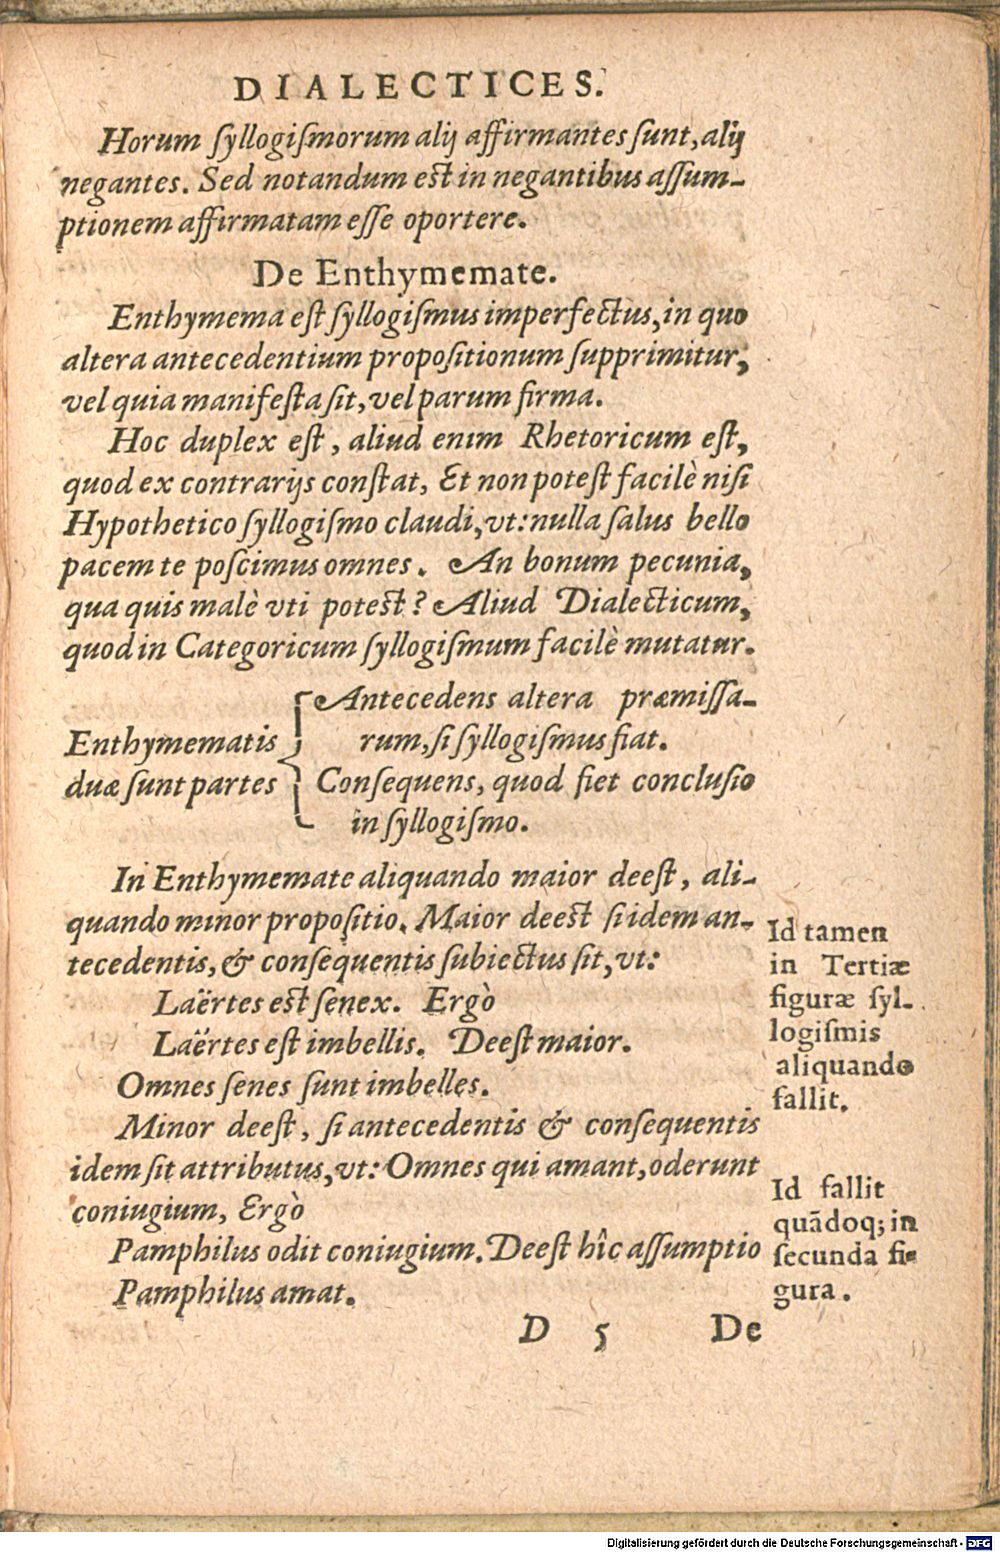 DIALECTICES.
Horum ſyllogiſmorum alij affirmantes ſunt, alij
negantes. Sed notandum est in negantibus aſſum-
ptionem affirmatam eſſe oportere.
De Enthymemate.
Enthymema eſt ſyllogiſmus imperfectus, in quo
altera antecedentium propoſitionum ſupprimitur,
vel quia manifeſta ſit, vel parum firma.
Hoc duplex eſt, aliud enim Rhetoricum eſt,
quod ex contrarijs conſtat, Et non poteſt facilè niſi
Hypothetico ſyllogiſmo claudi, vt: nulla ſalus bello
pacem te poſcimus omnes. An bonum pecunia,
qua quis malè vti potest? Aliud Dialecticum,
quod in Categoricum ſyllogiſmum facilè mutatur.
Enthymematis
duæ ſunt partes
Antecedens altera præmiſſa-
rum, ſi ſyllogiſmus fiat.
Conſequens, quod fiet concluſio
in ſyllogiſmo.
In Enthymemate aliquando maior deeſt, ali-
quando minor propoſitio. Maior deest ſi idem an-
tecedentis, & conſequentis ſubiectus ſit, vt:
Laërtes est ſenex. Ergò
Laërtes eſt imbellis. Deeſt maior.
Omnes ſenes ſunt imbelles.
Id tamen
in Tertiæ
figuræ ſyl-
logiſmis
aliquando
fallit.
Minor deeſt, ſi antecedentis & conſequentis
idem ſit attributus, vt: Omnes qui amant, oderunt
coniugium, Ergò
Pamphilus odit coniugium. Deeſt hîc aſſumptio
Pamphilus amat.
Id fallit
quãdoq; in
ſecunda fi-
gura.
D 5 De
Digitalisierung gefördert durch die Deutsche Forschungsgemeinschaft - DFG